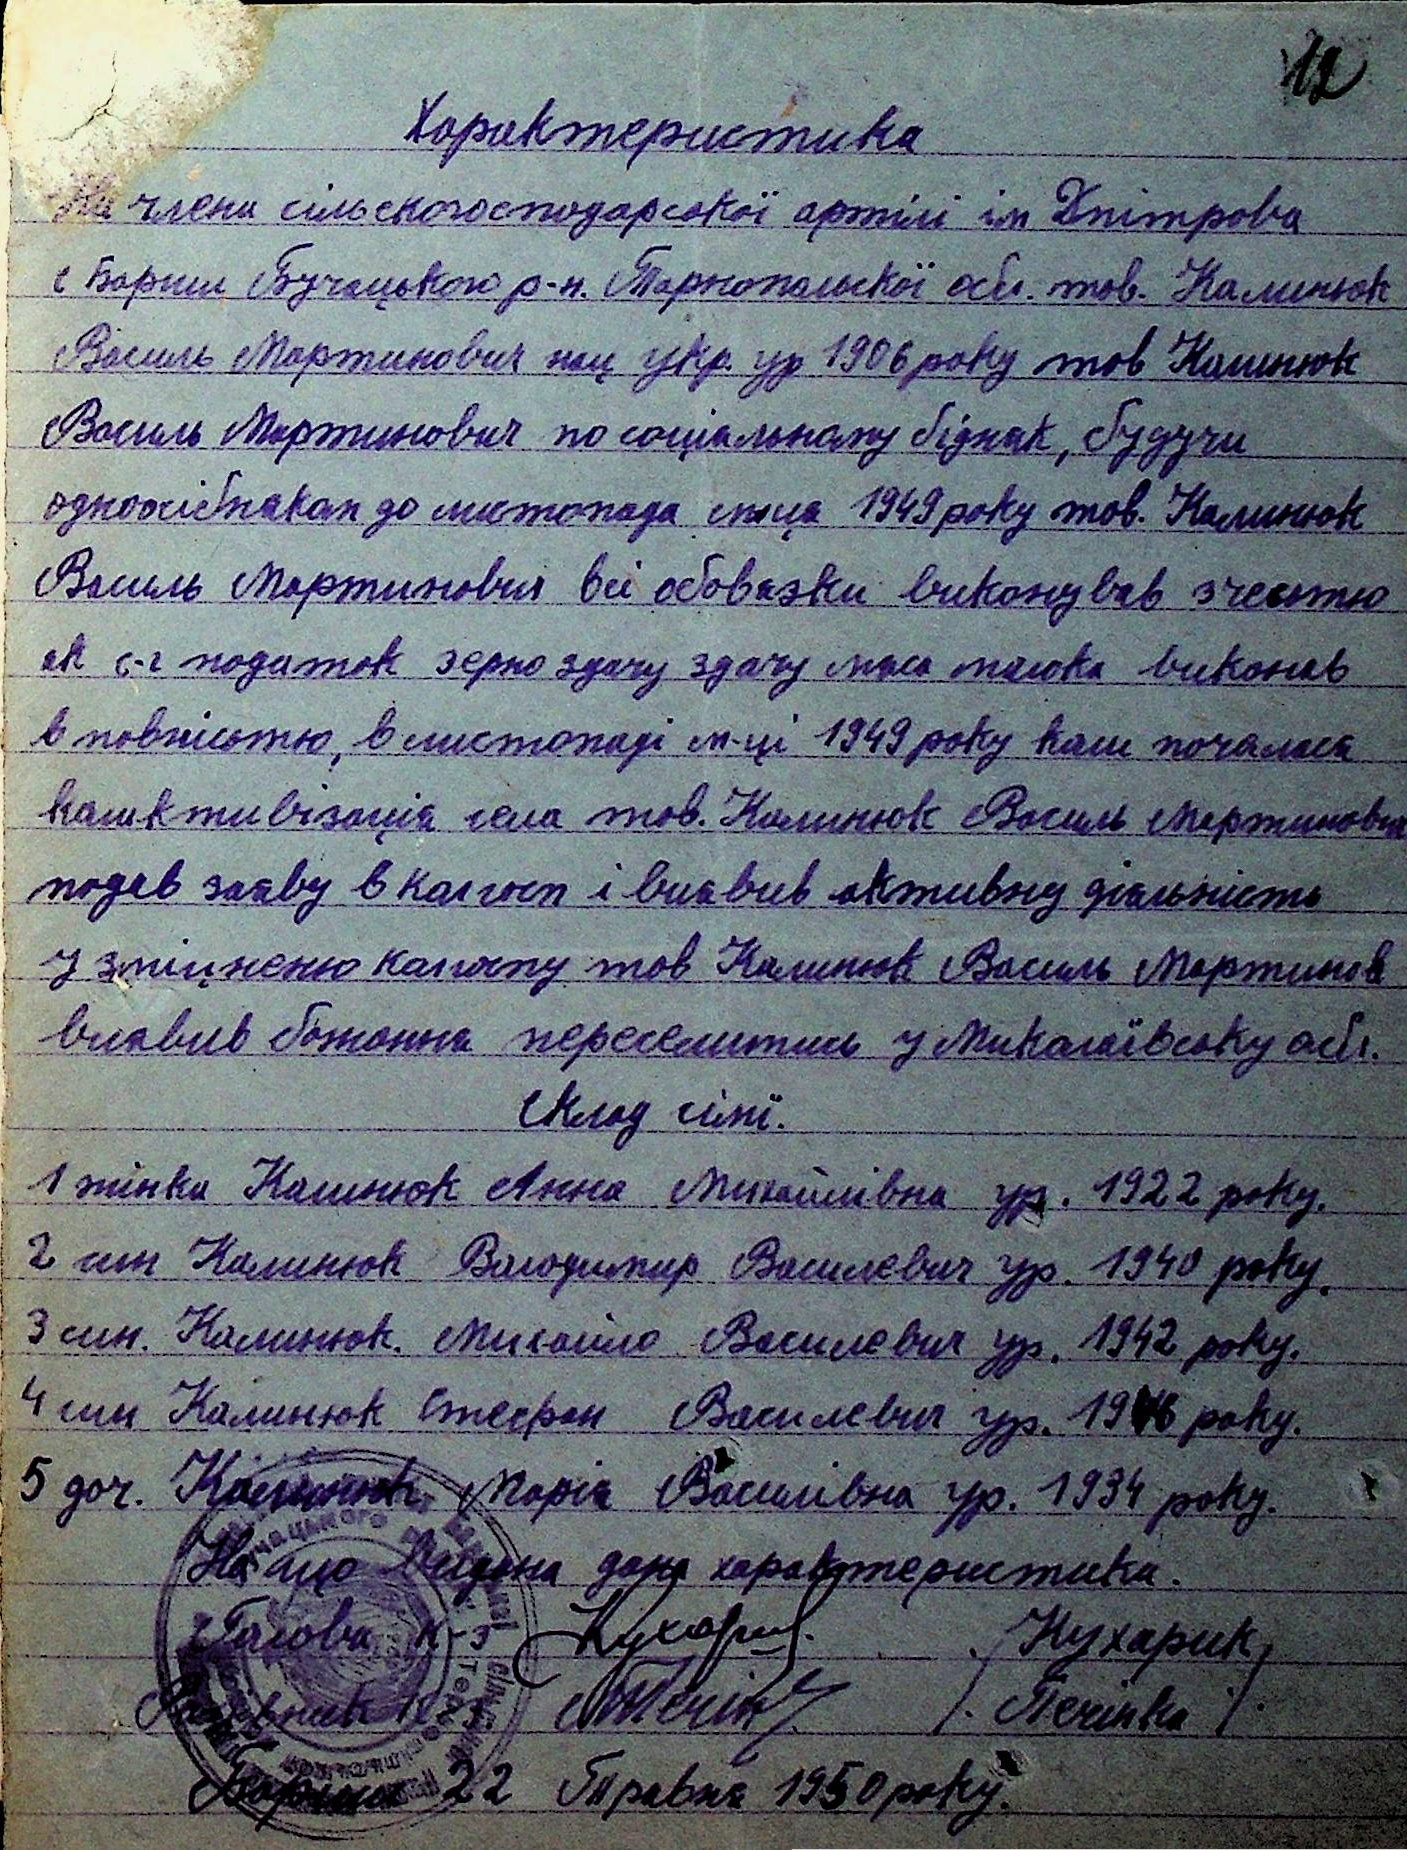 12
Характеристика
На члена сільскогосподарської артілі ім Дмітрова
с Бариш Бучацького р-н. Тарнопольскої обл. тов. Калинюк
Василь Мартинович нац укр. ур 1906 року тов Калинюк
Василь Мартинович по соціальному бідняк, будучи
одноосібнаком до листопада м-ца 1949 року тов. Калинюк
Василь Мартинович всі обовязки виконував з честю
як с-г податок зерно здачу здачу мяса малока виконав
в повністю, в листопаді м-ці 1949 року коли почалася
коликтивізація села тов. Калинюк Василь Мартинович
подав заяву в колгосп і виявив активну діяльність
у зміцненю колгоспу тов Калинюк Василь Мартинов
виявив бажання переселитись у Миколаївську обл.
Склад сімї.
1 жінка Калинюк Анна Михайлівна ур. 1922 року.
2 син Калинюк Володимир Василевич ур. 1940 року.
3 син. Калинюк. Михайло Василевич ур. 1942 року.
4 син Калинюк Стефан Василевич ур. 1946 року.
5 доч. Калинюк Марія Василівна ур. 1934 року.
На що видана дана характеристика.
Голова к-з Кухарик / Кухарик /
/. Печінка /.
Бариш 22 Травня 1950 року.